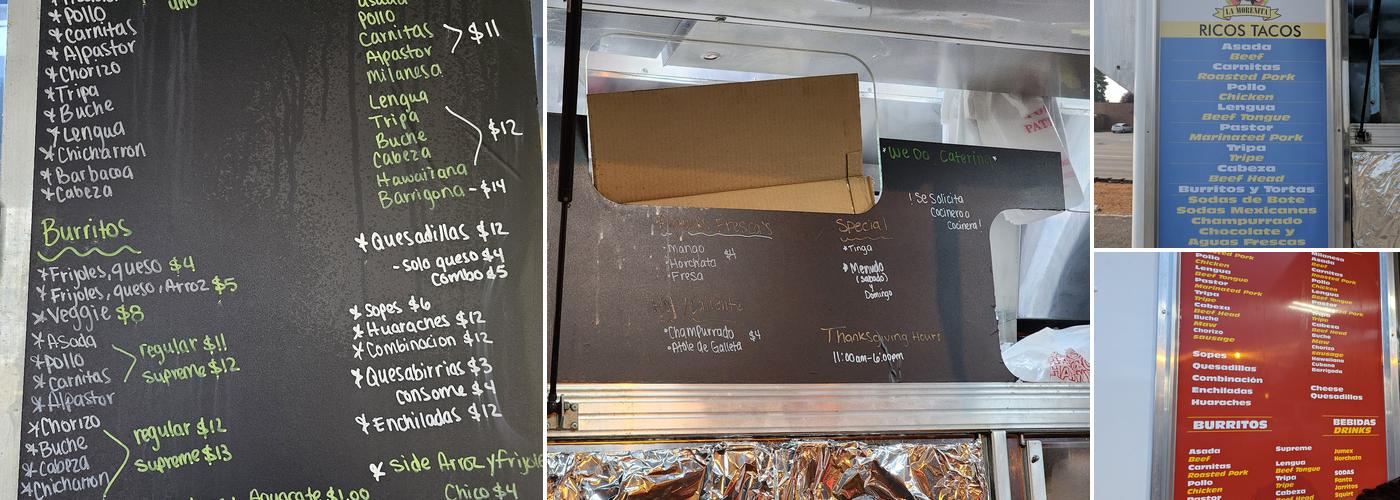 *Pollo
*Carnitas
*Alpastor
*Chorizo
*Tripa
*Buche
*Lengua
*Chicharron
*Barbacoa
*Cabeza
Burritos
*Frijoles, queso $4
*Frijoles, queso, Arroz $5
*Veggie $8
*Asada
*Pollo
*Carnitas
*Alpastor
regular $11
supreme $12
*Chorizo
*Buche
*Cabeza
*Chicharron
regular $12
supreme $13
Aguacate $1.00
Pollo
Carnitas
Alpastor
Milanesa
$11
Lengua
Tripa
Buche
Cabeza
$12
Hawaiiana
Barrigona - $14
*Quesadillas $12
-solo queso $4
combo $5
*Sopes $6
*Huaraches $12
*Combinacion $12
*Quesabirrias $3
consome $4
*Enchiladas $12
*side Arroz y frijole
Chico $4
*We Do Catering*
¡Se Solicita
Cocinero o
Cocinera!
Fresca's
Mango
Horchata $4
•Fresa
•Champurrado $4
•Atole de Galleta
Special
*Tinga
*Menudo
(sabado)
y
Domingo
Thanksgiving Hours
11:00am-6:00pm
LA MORENITA
RICOS TACOS
Asada
Beef
Carnitas
Roasted Pork
Pollo
Chicken
Lengua
Beef Tongue
Pastor
Marinated Pork
Tripa
Tripe
Cabeza
Beef Head
Burritos y Tortas
Sodas de Bote
Sodas Mexicanas
Champurrado
Chocolate y
Aguas Frescas
Pollo
Chicken
Lengua
Beef Tongue
Pastor
Marinated Pork
Tripa
Tripe
Cabeza
Beef Head
Buche
Maw
Chorizo
sausage
Sopes
Quesadillas
Combinación
Enchiladas
Huaraches
Milanesa
Asada
Beef
Carnitas
Roasted Pork
Pollo
Chicken
Lengua
Beef Tongue
Pastor
Tripa
Tripe
Cabeza
Beef Head
Buche
Maw
Chorizo
sausage
Hawaiiana
Cubana
Barrigona
Cheese
Quesadillas
BURRITOS
Asada
Beef
Carnitas
Roasted Pork
Pollo
Chicken
Pastor
Supreme
Lengua
Beef Tongue
Tripa
Tripe
Cabeza
Beef Head
BEBIDAS
DRINKS
Jumex
Horchata
SODAS
Fanta
Jarritos
Squirt